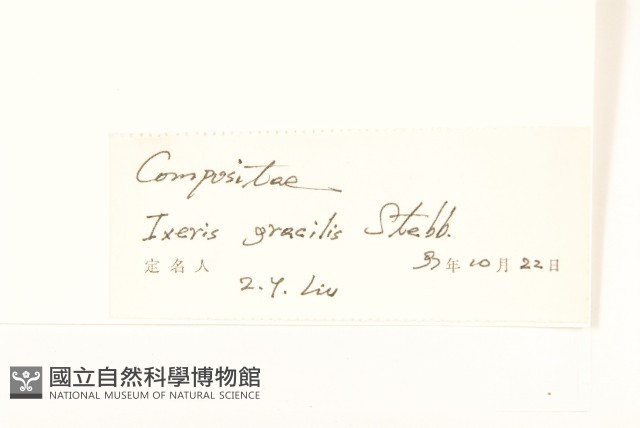 Compositae
Ixeris gracilis Stebb.
定名人 年10月22日
Z. Y. Liu
國立自然科學博物館
NATIONAL MUSEUM OF NATURAL SCIENCE